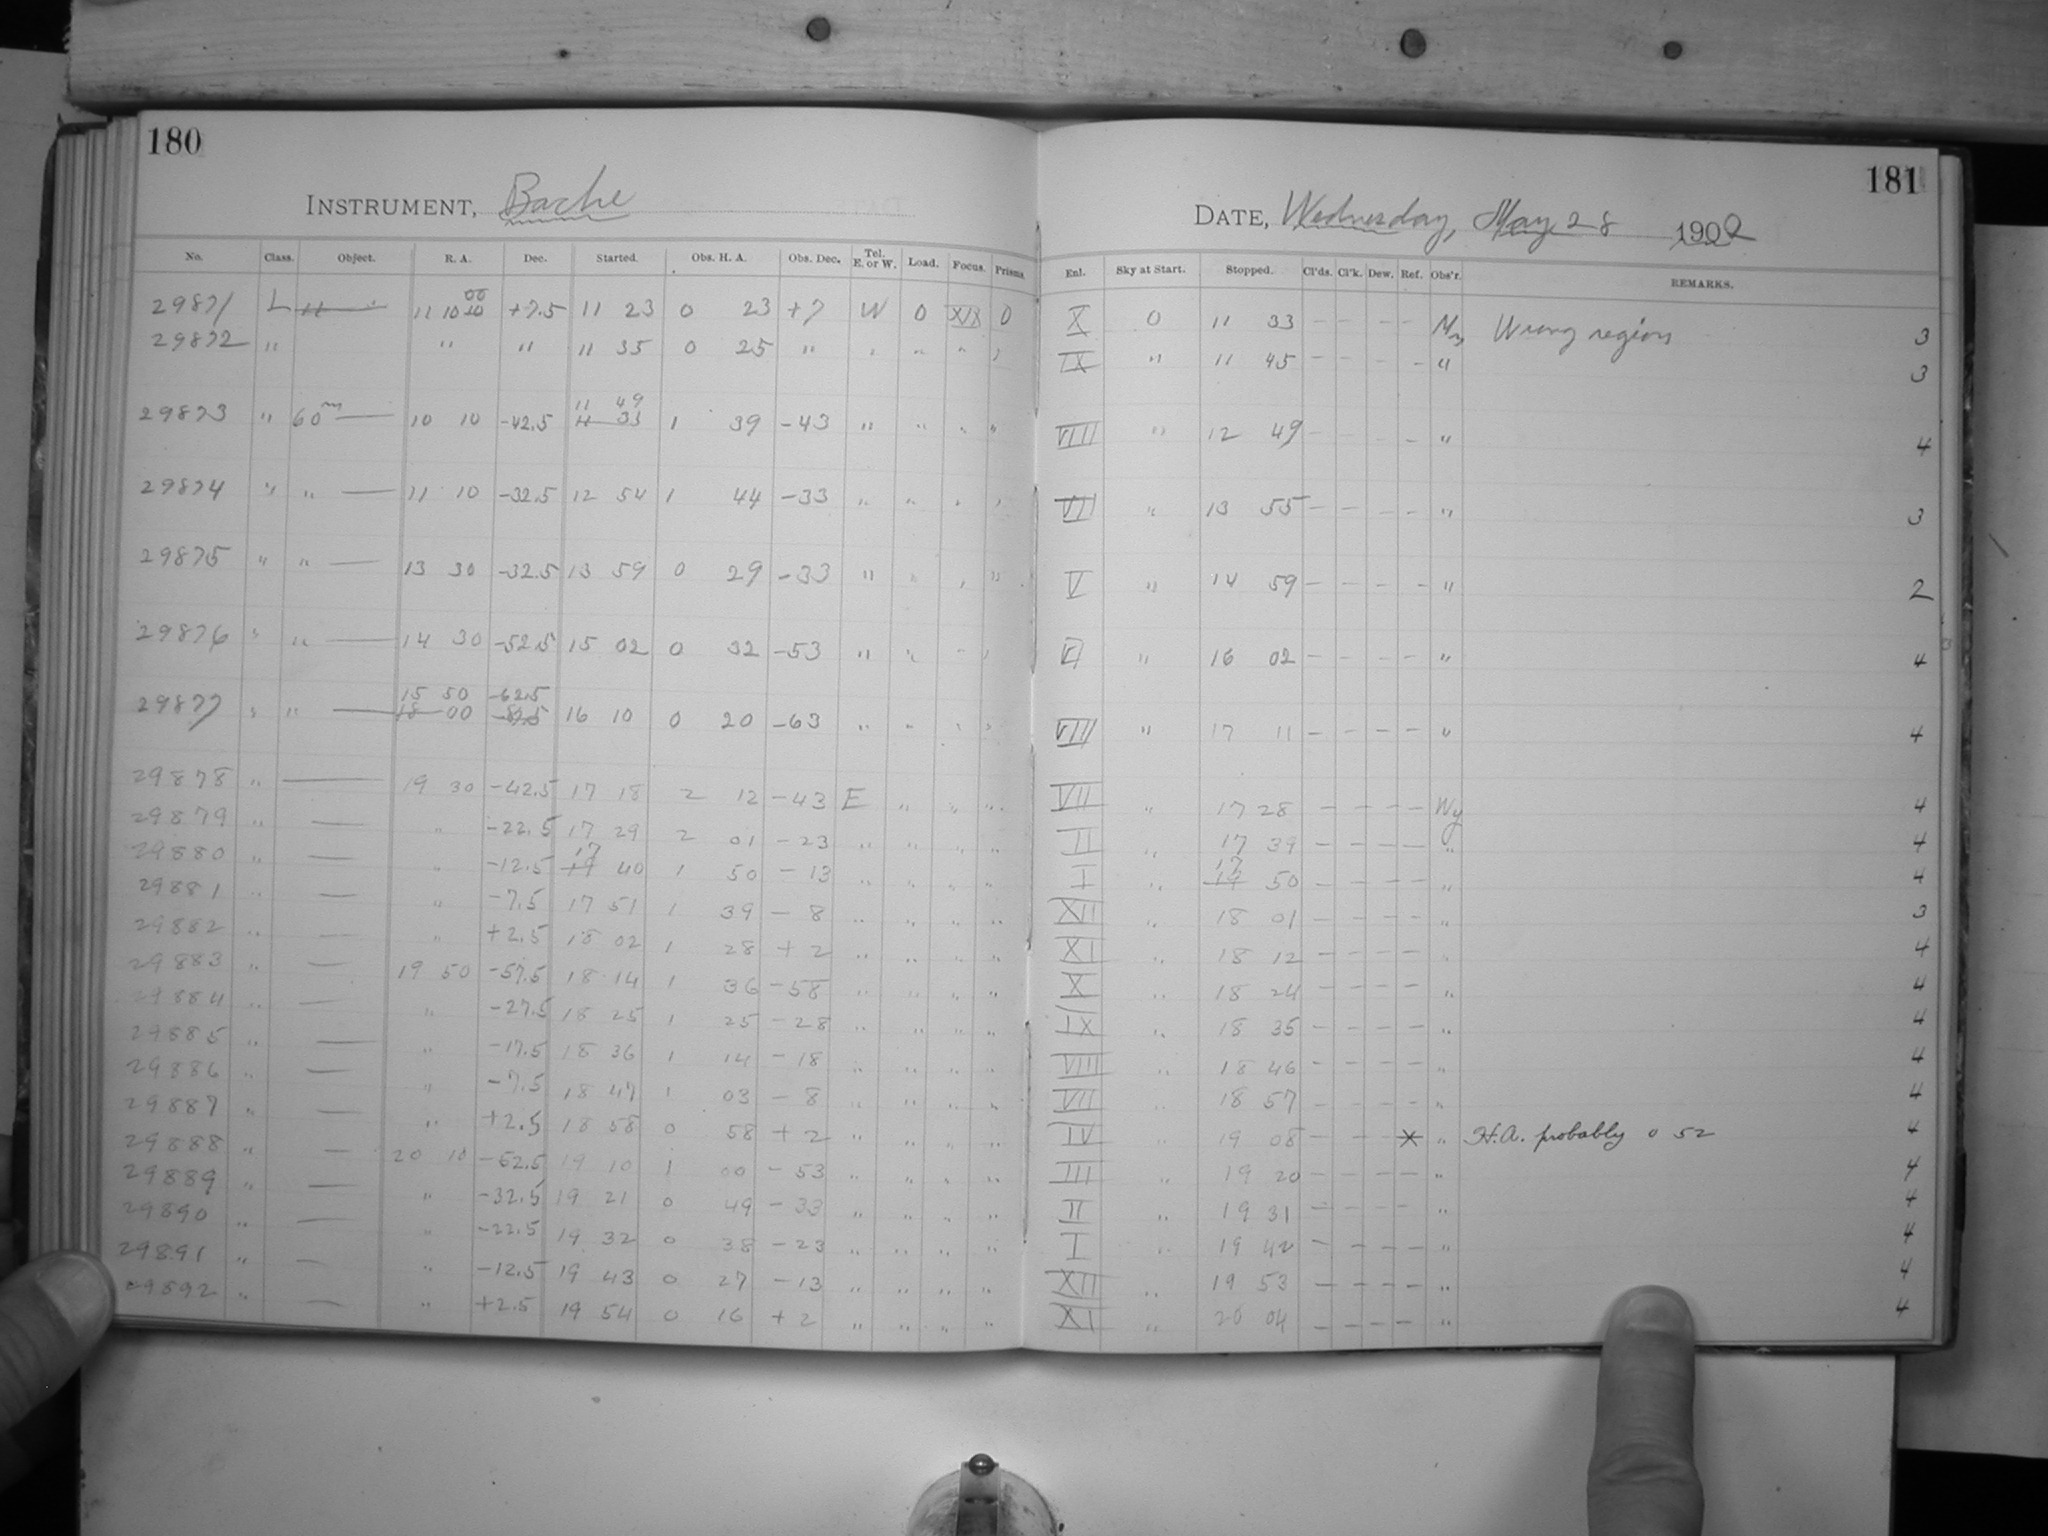 180
INSTRUMENT, Bache
No. Class. Object. R. A. Dec. Started. Obs. H. A. Obs. Dec. Tel. E. or W. Load. Focus. Prisms.
29871 L 11 10 00 +7.5 11 23 0 23 +7 W 0 XIX 0
29872 " " " 11 35 0 25 " " " " "
29873 " 60m — 10 10 -42.5 11 49 1 39 -43 " " " "
29874 " " — 11 10 -32.5 12 54 1 44 -33 " " " "
29875 " " — 13 30 -32.5 13 59 0 29 -33 " " " "
29876 " " — 14 30 -52.5 15 02 0 32 -53 " " " "
29877 " " — 15 50 -62.5 16 10 0 20 -63 " " " "
29878 " — 19 30 -42.5 17 18 2 12 -43 E " " "
29879 " — " -22.5 17 29 2 01 -23 " " " "
29880 " — " -12.5 17 40 1 50 -13 " " " "
29881 " — " -7.5 17 51 1 39 -8 " " " "
29882 " — " +2.5 18 02 1 28 +2 " " " "
29883 " — 19 50 -57.5 18 14 1 36 -58 " " " "
29884 " — " -27.5 18 25 1 25 -28 " " " "
29885 " — " -17.5 18 36 1 14 -18 " " " "
29886 " — " -7.5 18 47 1 03 -8 " " " "
29887 " — " +2.5 18 58 0 58 +2 " " " "
29888 " — 20 10 -52.5 19 10 1 00 -53 " " " "
29889 " — " -32.5 19 21 0 49 -33 " " " "
29890 " — " -22.5 19 32 0 38 -23 " " " "
29891 " — " -12.5 19 43 0 27 -13 " " " "
29892 " — " +2.5 19 54 0 16 +2 " " " "
181
DATE, Wednesday, May 28 1902
Enl. Sky at Start. Stopped. Cl'ds. Cl'k. Dew. Ref. Obs'r. REMARKS.
X 0 11 33 — — — — Wrong region 3
IX " 11 45 — — — — " 3
VIII " 12 49 — — — — " 4
VI " 13 55 — — — — " 3
V " 14 59 — — — — " 2
" 16 02 — — — — " 4
VIII " 17 11 — — — — " 4
VII " 17 28 — — — — Wy 4
II " 17 39 — — — — " 4
I " 17 50 — — — — " 4
XII " 18 01 — — — — " 3
XI " 18 12 — — — — " 4
X " 18 24 — — — — " 4
IX " 18 35 — — — — " 4
VIII " 18 46 — — — — " 4
VII " 18 57 — — — — " 4
IV " 19 08 — — — X " H.A. probably 0 52 4
III " 19 20 — — — — " 4
II " 19 31 — — — — " 4
I " 19 42 — — — — " 4
XII " 19 53 — — — — " 4
XI " 20 04 — — — — " 4